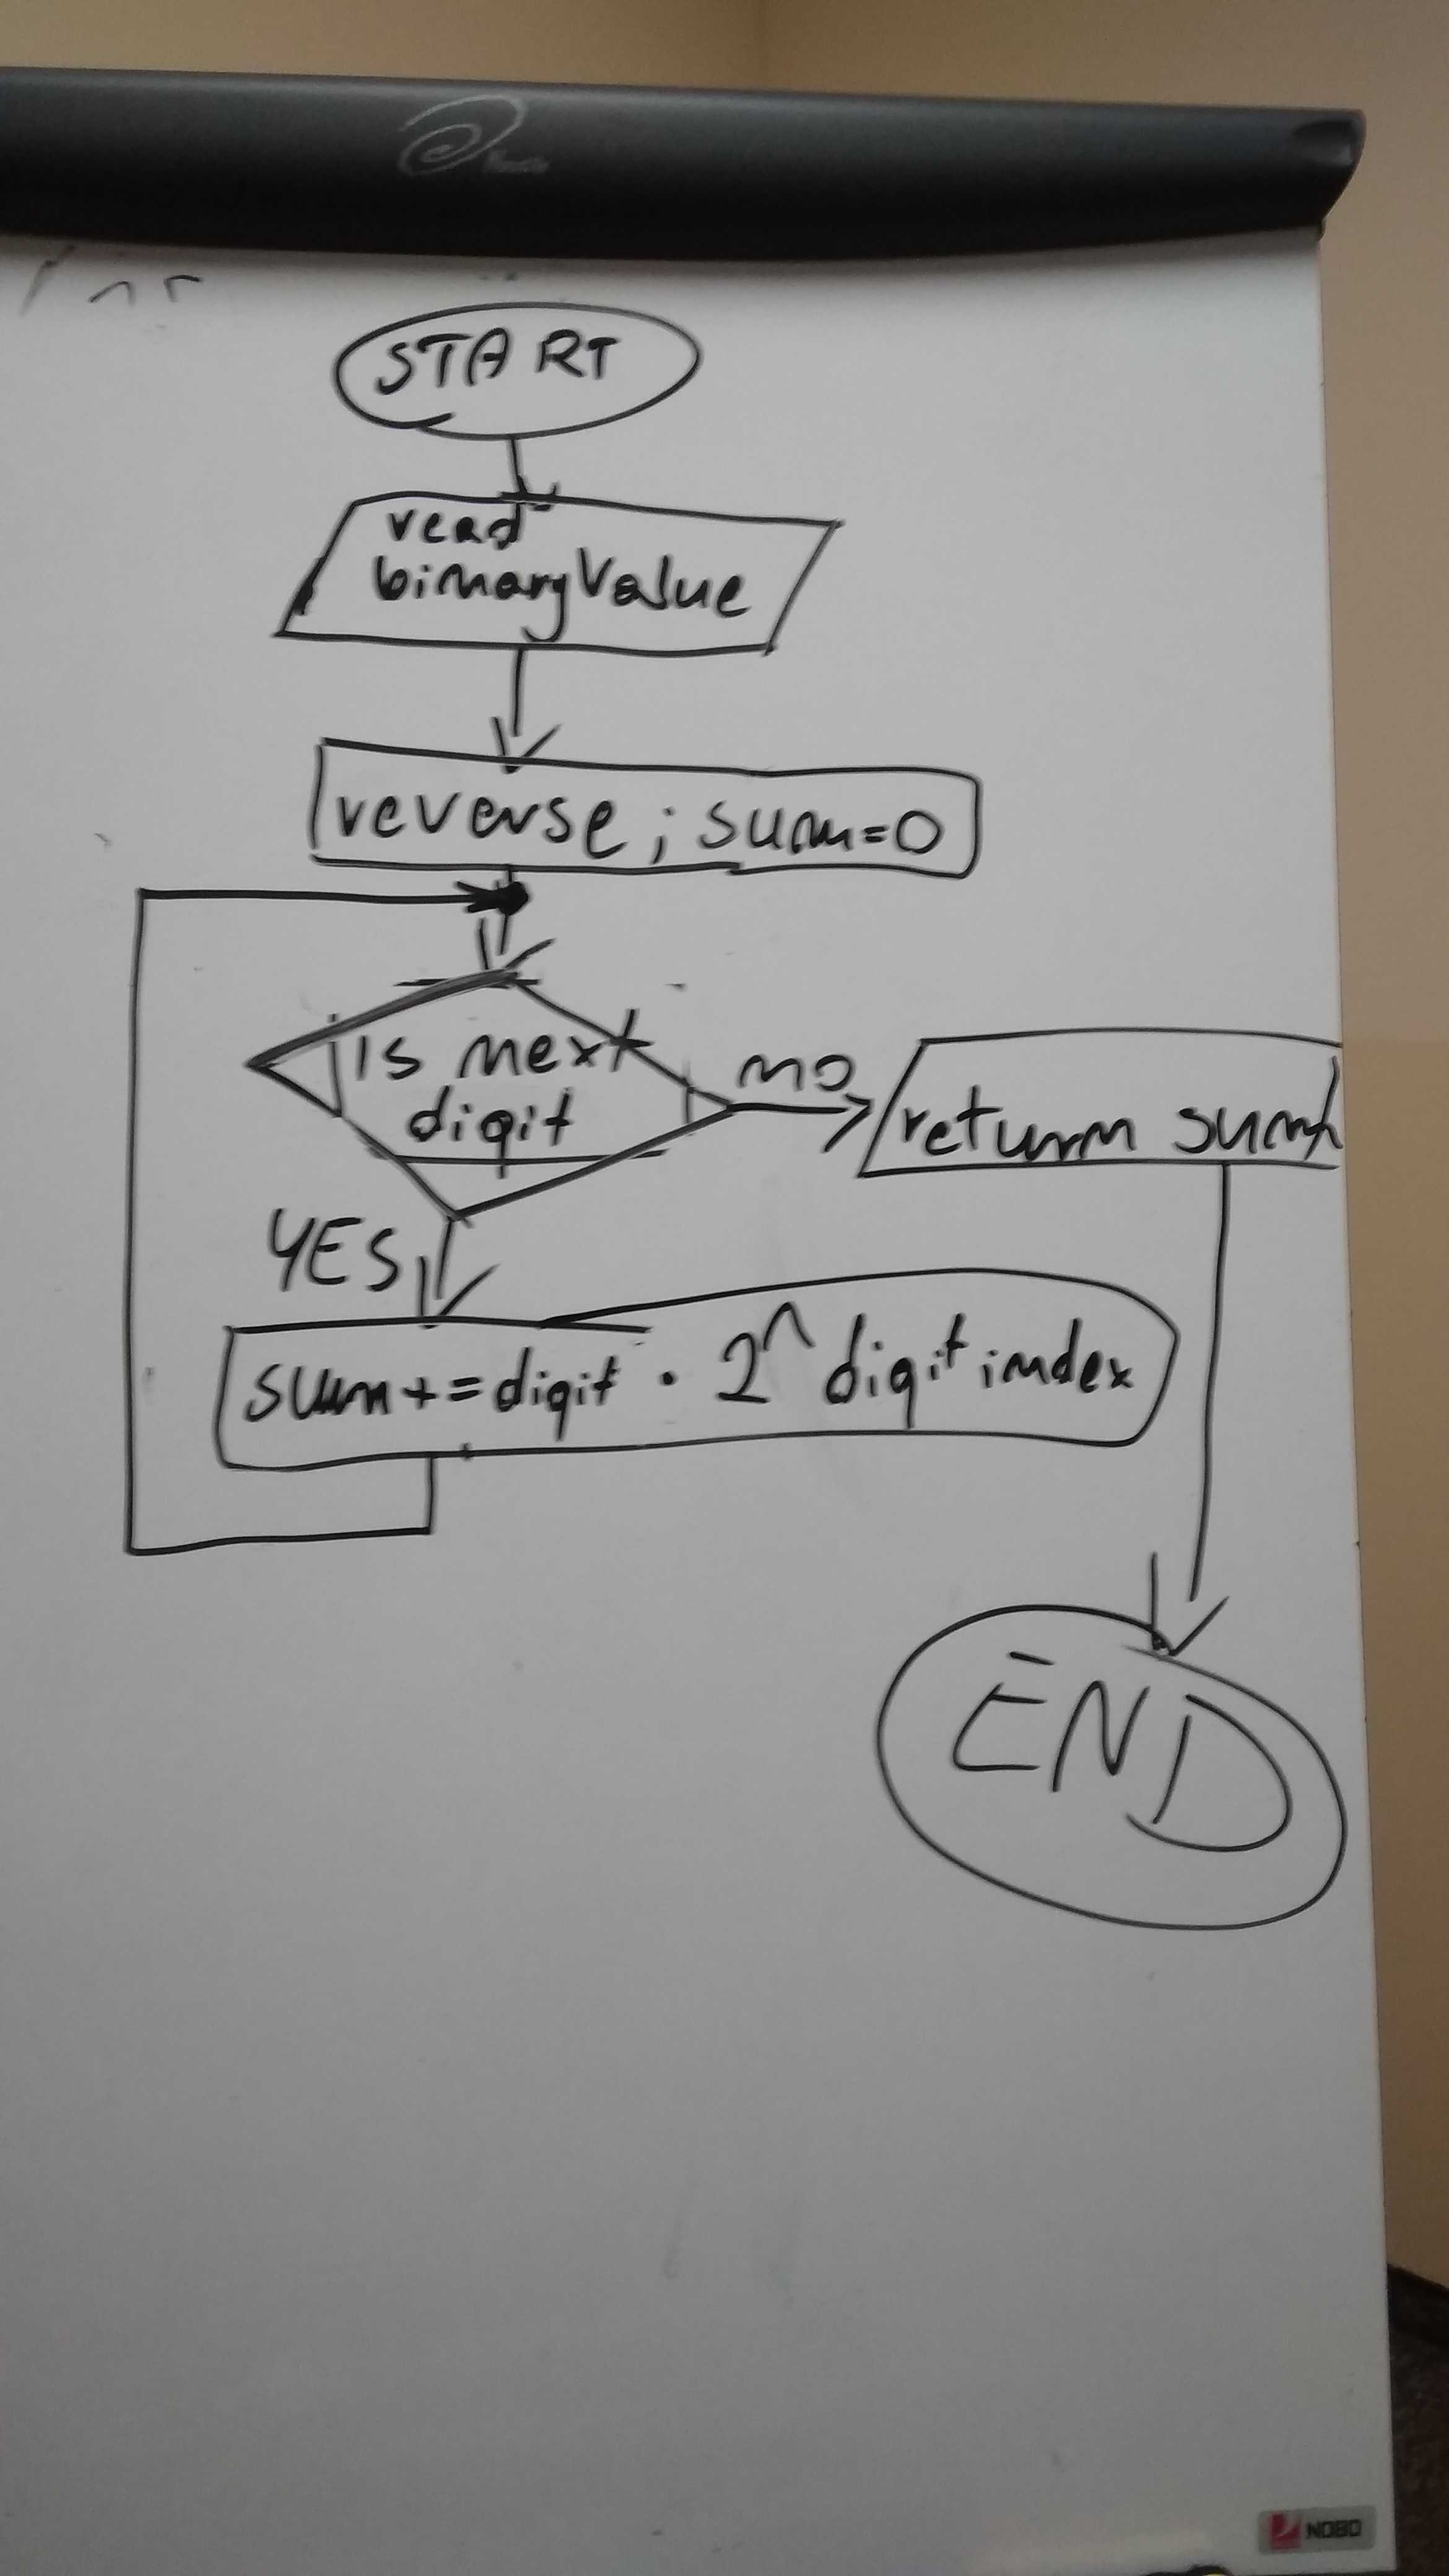 START
read
binaryValue
reverse; sum=0
is next
digit
no
return sum
YES
sum+=digit · 2^digitindex
END
NOBO